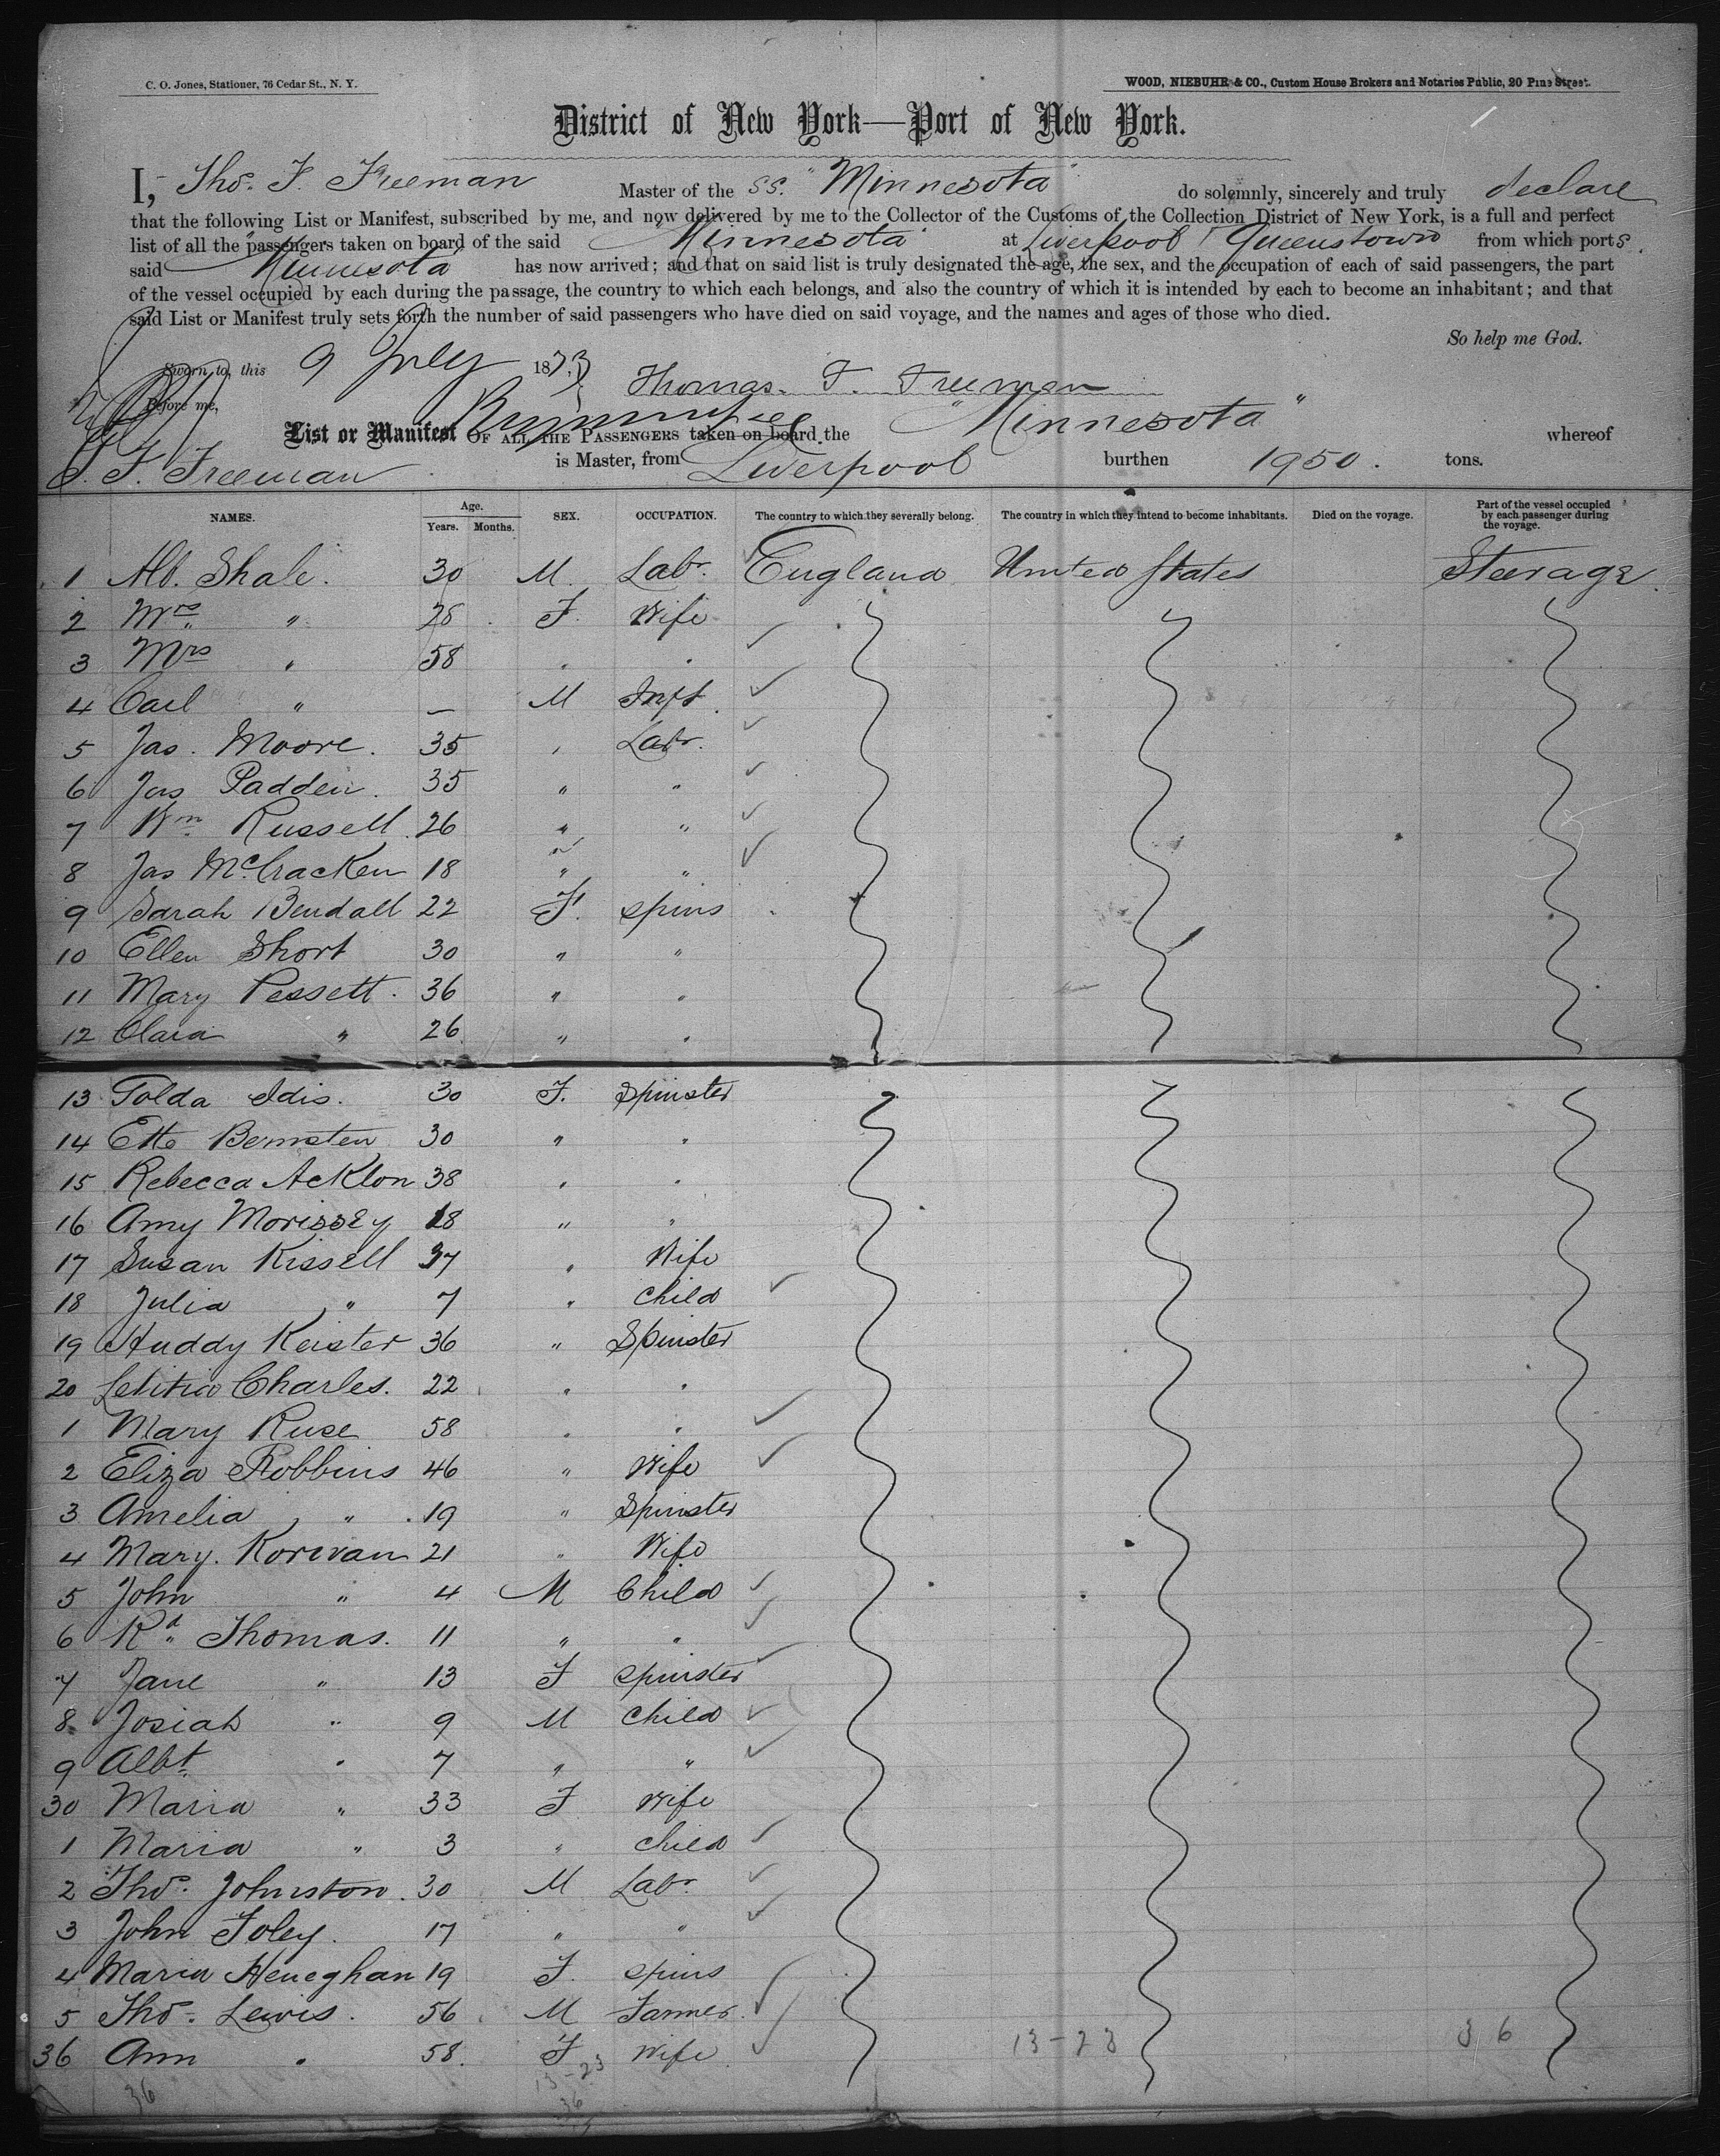 C. O. Jones, Stationer, 76 Cedar St., N. Y.
WOOD, NIEBUHR & CO., Custom House Brokers and Notaries Public, 20 Pine Street.
District of New York—Port of New York.
I, Thos. F. Freeman Master of the SS. "Minnesota" do solemnly, sincerely and truly declare
that the following List or Manifest, subscribed by me, and now delivered by me to the Collector of the Customs of the Collection District of New York, is a full and perfect
list of all the passengers taken on board of the said Minnesota at Liverpool & Queenstown from which ports
said Minnesota has now arrived; and that on said list is truly designated the age, the sex, and the occupation of each of said passengers, the part
of the vessel occupied by each during the passage, the country to which each belongs, and also the country of which it is intended by each to become an inhabitant; and that
said List or Manifest truly sets forth the number of said passengers who have died on said voyage, and the names and ages of those who died.
So help me God.
Sworn to, this 9 July 1873
Thomas. F. Freeman
Before me,
List or Manifest OF ALL THE PASSENGERS taken on board the "Minnesota" whereof
T. F. Freeman is Master, from Liverpool burthen 1950. tons.
NAMES. Age. Years. Months. SEX. OCCUPATION. The country to which they severally belong. The country in which they intend to become inhabitants. Died on the voyage. Part of the vessel occupied by each passenger during the voyage.
1 Alb. Shale. 30 M. Labr. England United States Steerage
2 Mrs " 28 F. Wife
3 Mrs " 58 " "
4 Carl " — M Inft.
5 Jas. Moore. 35 " Labr.
6 Jas Padden. 35 " "
7 Wm Russell. 26 " "
8 Jas McCracken 18 " "
9 Sarah Bendall 22 F. Spins
10 Ellen Short 30 " "
11 Mary Pessett. 36 " "
12 Clara " 26 " "
13 Golda Idis. 30 F. Spinster
14 Ette Bernsten 30 " "
15 Rebecca Acklon 38 " "
16 Amy Morissey 18 " "
17 Susan Kissell 37 " Wife
18 Julia " 7 " Child
19 Huddy Keister 36 " Spinster
20 Letitia Charles. 22 " "
1 Mary Ruse 58 " "
2 Eliza Robbins 46 " Wife
3 Amelia " 19 " Spinster
4 Mary. Korivan 21 " Wife
5 John " 4 M Child
6 Rd. Thomas. 11 " "
7 Jane " 13 F Spinster
8 Josiah " 9 M Child
9 Albt. " 7 " "
30 Maria " 33 F Wife
1 Maria " 3 " Child
2 Thos. Johnston. 30 M Labr.
3 John Foley. 17 " "
4 Maria Heneghan 19 F. Spins
5 Thos. Lewis. 56 M Farmer.
36 Ann " 58. F Wife
13-23 36
36 13-23
36